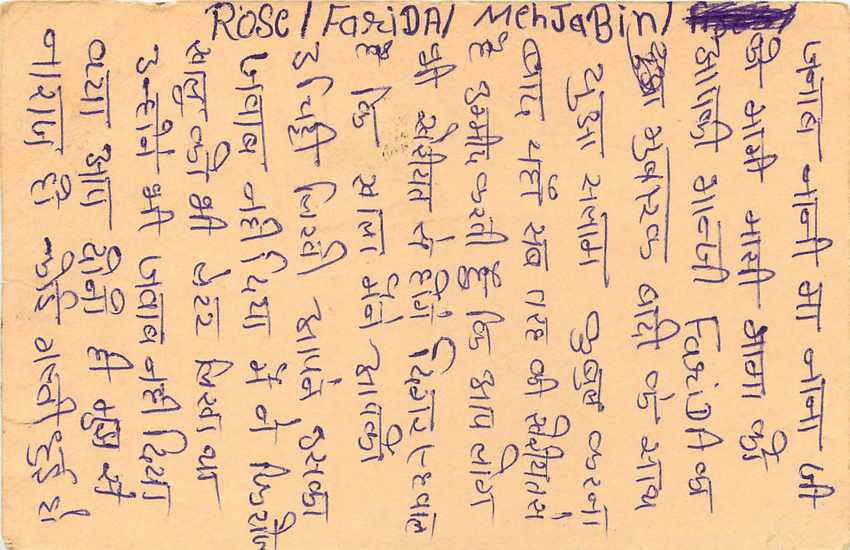 ROSE / FariDA / MehJaBin /
जनाब नानी मा नाना जी
के मामी मासी मामा को
आपकी भानजी FariDA का
मुबारक बादी के साथ
दुआ सलाम कुबुल करना
बाद यहाँ सब तरह की खेरीयत से
है उम्मीद करती हूँ कि आप लोग
भी खेरीयत से होंगे दिगर
है कि खाला मेंने आपको
3 चिट्ठी लिखी आपने उसका
जवाब नही दिया में ने
को भी लेटर लिखा था
उन्होने भी जवाब नही दिया
क्या आप दोनो ही मुझ से
नाराज हो कोई गल्ती हुई हो